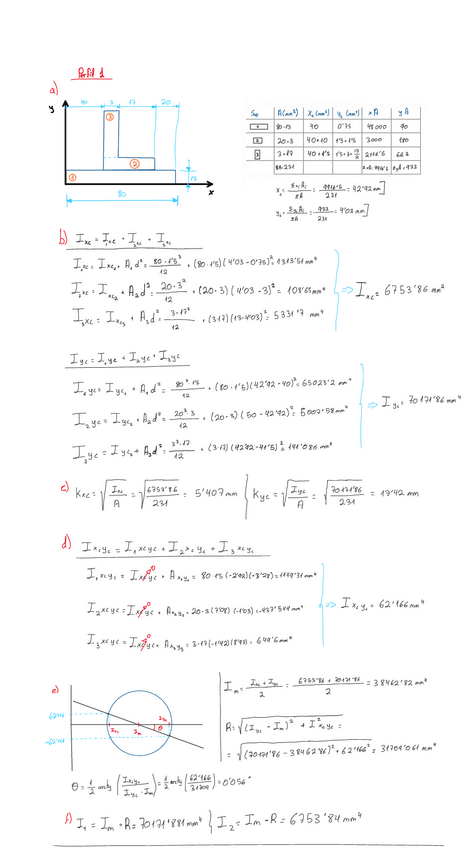 Prbl 1
a)
y
40 3 17 20
3
2
1
1'5
80
x
Sup A(mm²) X₀(mm) y₀(mm) xA yA
1 80·1'5 40 0'75 48000 90
2 20·3 40+10 1'5+1'5 3000 180
3 3·17 40+1'5 1'5+3+17/2 2116'5 663
ΣA: 231 ΣxA: 9916'5 ΣyA = 933
x_c = Σx_iA_i/ΣA = 9916'5/231 = 42'92 mm]
y_c = Σy_iA_i/ΣA = 933/231 = 4'03 mm]
b) I_xc = I_1xc + I_2xc + I_3xc
I_1xc = I_xc₁ + A₁d² = 80·1'5³/12 + (80·1'5)(4'03-0'75)² = 1313'51 mm⁴
I_2xc = I_xc₂ + A₂d² = 20·3³/12 + (20·3)(4'03-3)² = 108'65 mm⁴
I_3xc = I_xc₃ + A₃d² = 3·17³/12 + (3·17)(13-4'03)² = 5331'7 mm⁴
⇒ I_xc = 6753'86 mm²
I_yc = I_1yc + I_2yc + I_3yc
I_1yc = I_yc₁ + A₁d² = 80³·1'5/12 + (80·1'5)(42'92-40)² = 65023'2 mm⁴
I_2yc = I_yc₂ + A₂d² = 20³·3/12 + (20·3)(50-42'92)² = 5007'58 mm⁴
I_3yc = I_yc₃ + A₃d² = 3³·17/12 + (3·17)(42'92-41'5)² = 141'086 mm⁴
⇒ I_yc = 70171'86 mm⁴
c) K_xc = √(I_xc/A) = √(6753'86/231) = 5'407 mm } K_yc = √(I_yc/A) = √(70171'86/231) = 17'42 mm
d) I_xcyc = I_1xcyc + I_2xcyc + I_3xcyc
I_1xcyc = I_xcyc⁰ + A x₁y₁ = 80·1'5·(-2'92)(-3'28) = 1149'31 mm⁴
I_2xcyc = I_xcyc⁰ + A x₂y₂ = 20·3(7'08)(-1'03) = -437'544 mm⁴
I_3xcyc = I_xcyc⁰ + A x₃y₃ = 3·17(-1'42)(8'97) = 649'6 mm⁴
⇒ I_xcyc = 62'166 mm⁴
e)
62'166
-62'166
I_xc I_m θ I_yc
I_m = (I_xc + I_yc)/2 = (6753'86 + 70171'86)/2 = 38462'82 mm⁴
R = √((I_yc - I_m)² + I²_xcyc) =
= √((70171'86 - 38462'86)² + 62'166²) = 31709'061 mm⁴
θ = 1/2 arctg (I_xcyc/(I_yc - I_m)) = 1/2 arctg (62'166/31709) = 0'056°
f) I₁ = I_m + R = 70171'881 mm⁴ } I₂ = I_m - R = 6753'84 mm⁴